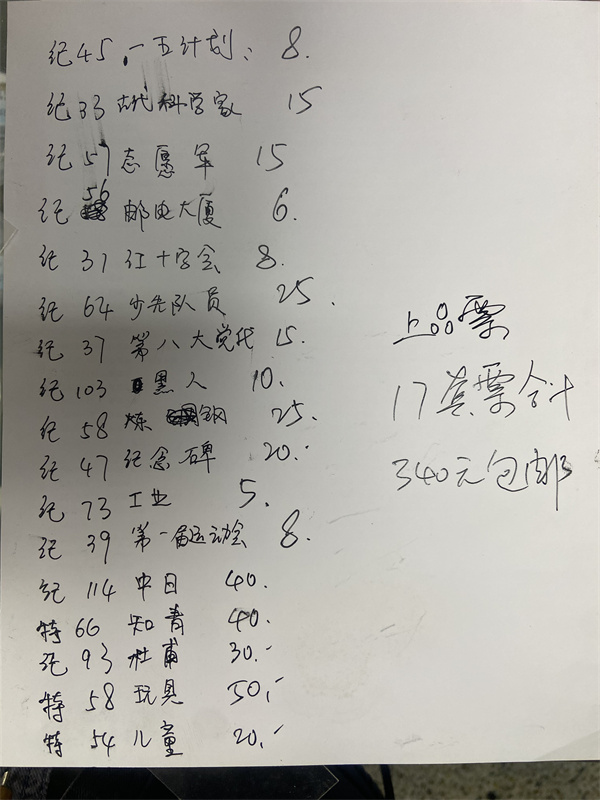 纪45.一五计划: 8.
纪33 古代科学家 15
纪57 志愿军 15
纪56 邮电大厦 6.
纪31 红十字会 8.
纪64 少先队员 25.
纪37 第八大党代 15.
纪103 黑人 10.
纪58 炼钢 25.
纪47 纪念碑 20.-
纪73 工业 5.
纪39 第一届运动会 8.
纪114 中日 40.
特66 知青 40.
纪93 杜甫 30.-
特58 玩具 50.-
特54 儿童 20.-
上品票
17套票合计
340元包邮